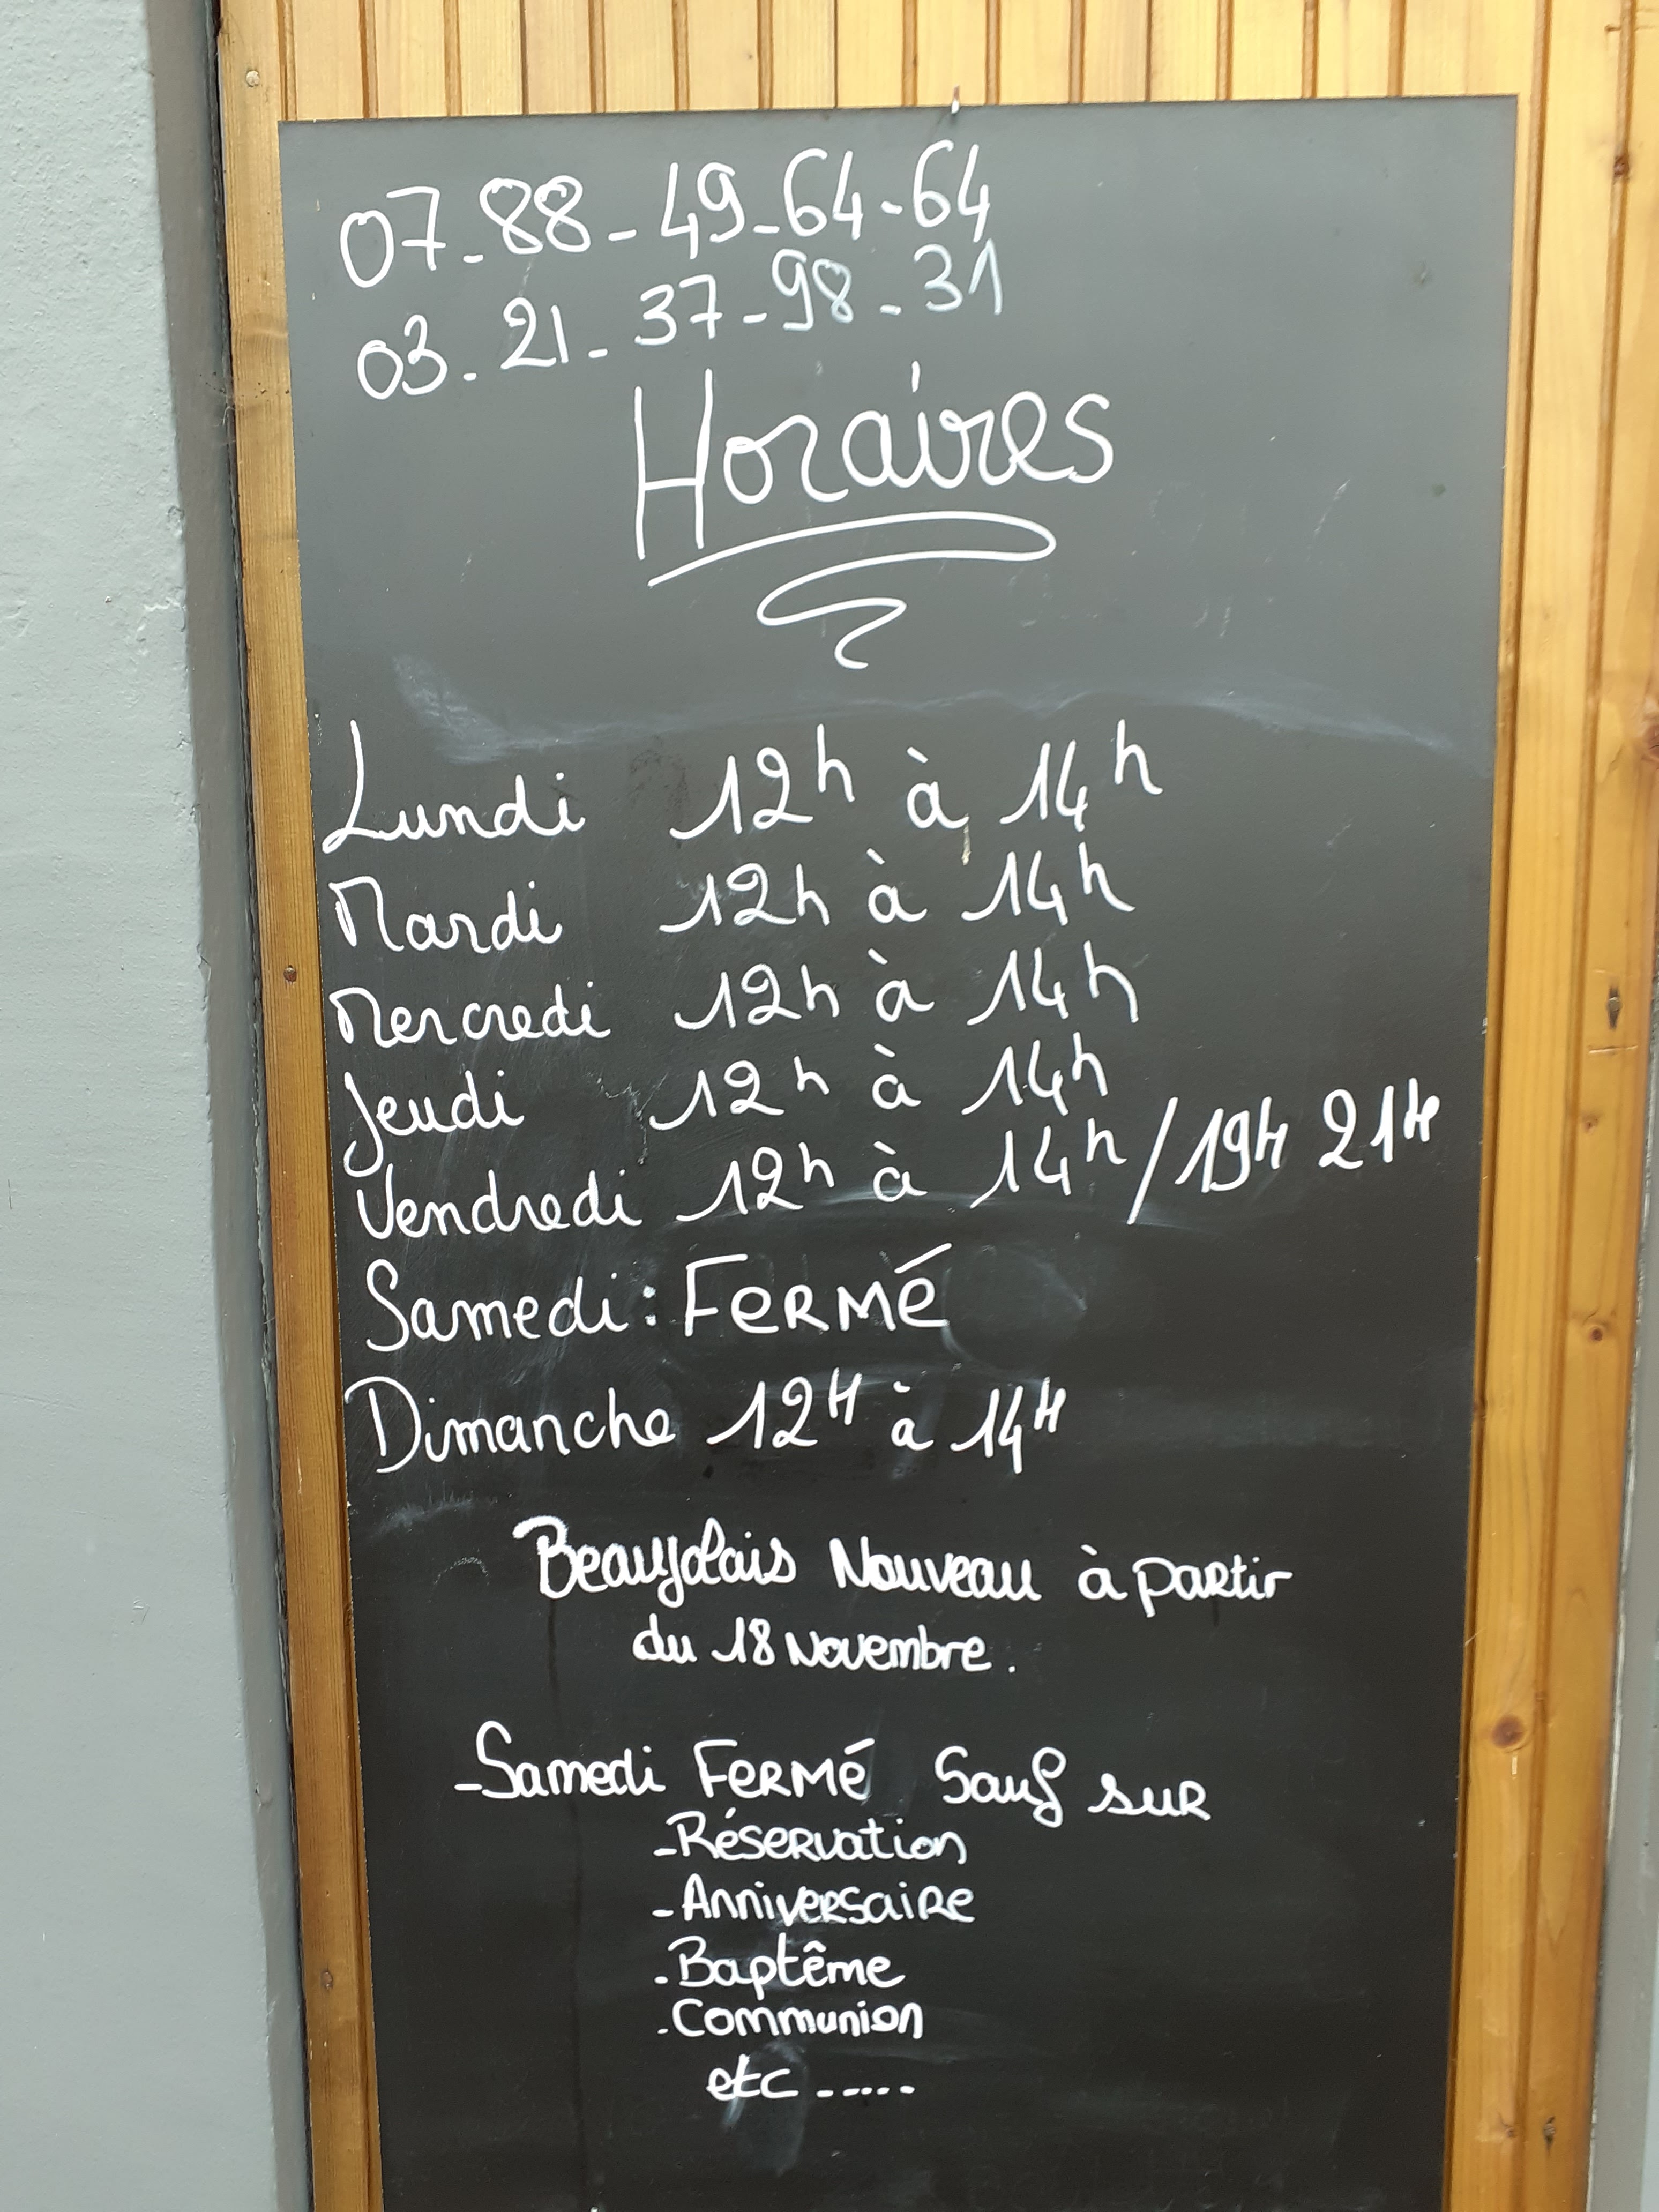 07-88-49-64-64
03-21-37-98-31
Horaires
Lundi 12h à 14h
Mardi 12h à 14h
Mercredi 12h à 14h
Jeudi 12h à 14h
Vendredi 12h à 14h / 19H 21H
Samedi : FeRMé
Dimanche 12H à 14H
Beaujolais Nouveau à partir
du 18 Novembre.
-Samedi FeRMé Sauf sur
-Réservation
-Anniversaire
-Baptême
-Communion
etc.....